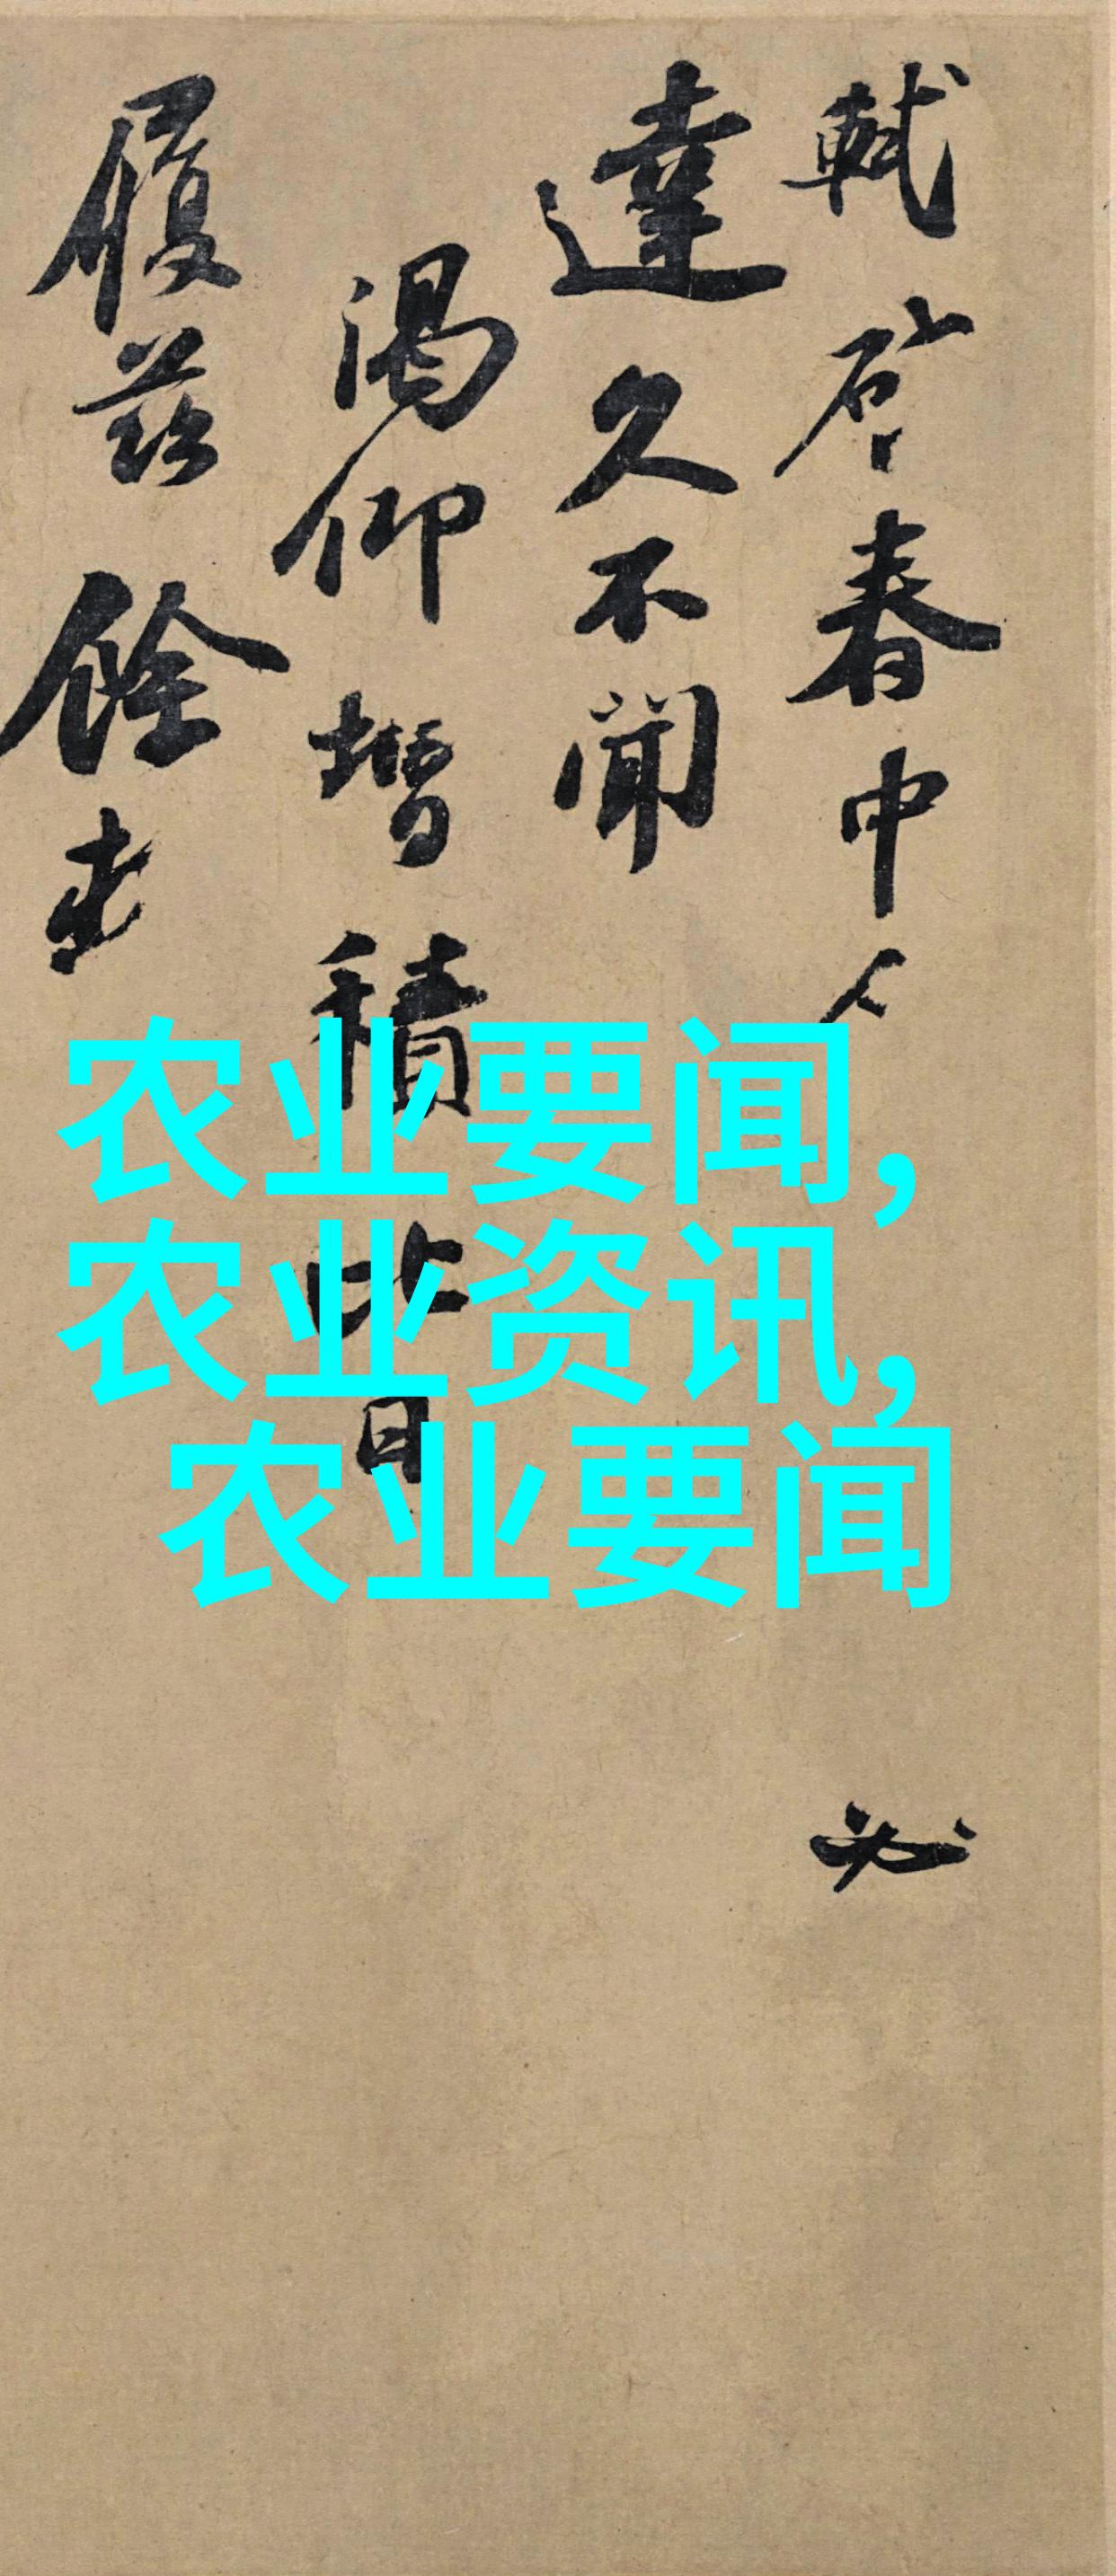 軾啓春中必
達久不聞
渴仰增積比日
履茲餘
农业要闻,
农业资讯,
农业要闻